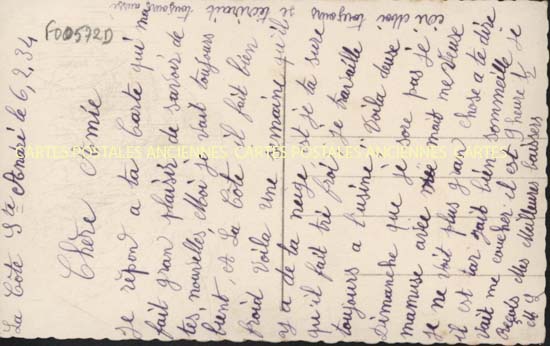 La Côte St André le 6, 2, 34
Chère Amie
Je répond a ta Carte qui ma
fait gran plaisir de savoir de
tes nouvelles Moi ja vait toujours
bient, A La Côte il fait bien
froid Voila une semaine qu'il
y a de la neige et je ta sure
qu'il fait tré froi je travaille
toujours a l'usine. Voila deuse
dimanche que je sore pas jé
mamuse avec mait me
Je ne voit plus gran chose a te dire
il est tar jait bien sommeille je
Vait me coucher il est 9 heure ½
Reçois Mes Meilleurs baisers
écri Moi toujours
je técrirait toujours aussi
F00572D
CARTES POSTALES ANCIENNES CARTES POSTALES ANCIENNES CARTES POSTALES ANCIENNES